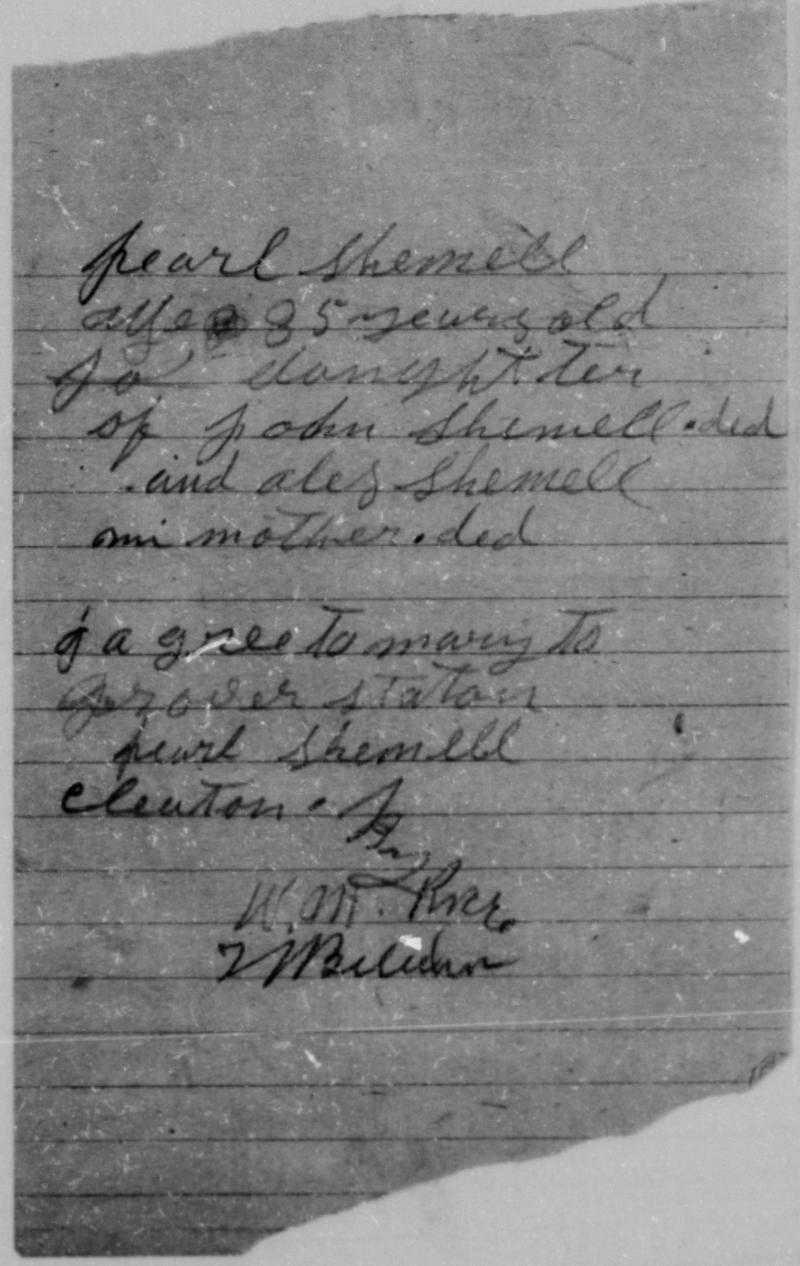 pearl Shemell
age 35 years old
daughtter
of john Shemell. ded
and alez Shemell
mi mother. ded
j a gree to mary to
grover staton
pearl Shemell
Cleaton.
W. M.